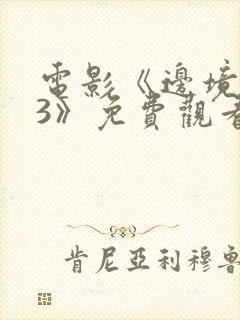 電影《邊境
3》免費觀看
肯尼亞利穆魯